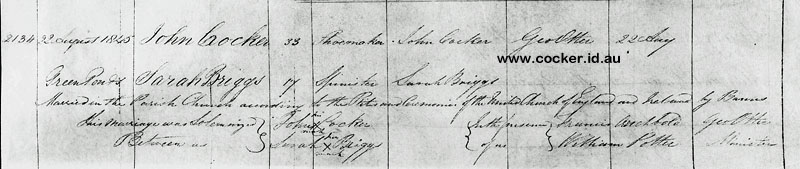 2134 22 August 1845 John Cocker 33 Shoemaker John Cocker Geo Otter 22 Aug
www.cocker.id.au
Green Ponds Sarah Briggs 17 Spinster Sarah Briggs
Married in the Parish Church according to the Rites and Ceremonies of the United Church of England and Ireland by Banns
This Marriage was Solemnized John his mark Cocker In the presence Francis Archbold Geo Otter
Between us Sarah her X mark Briggs of us William Potter Minister